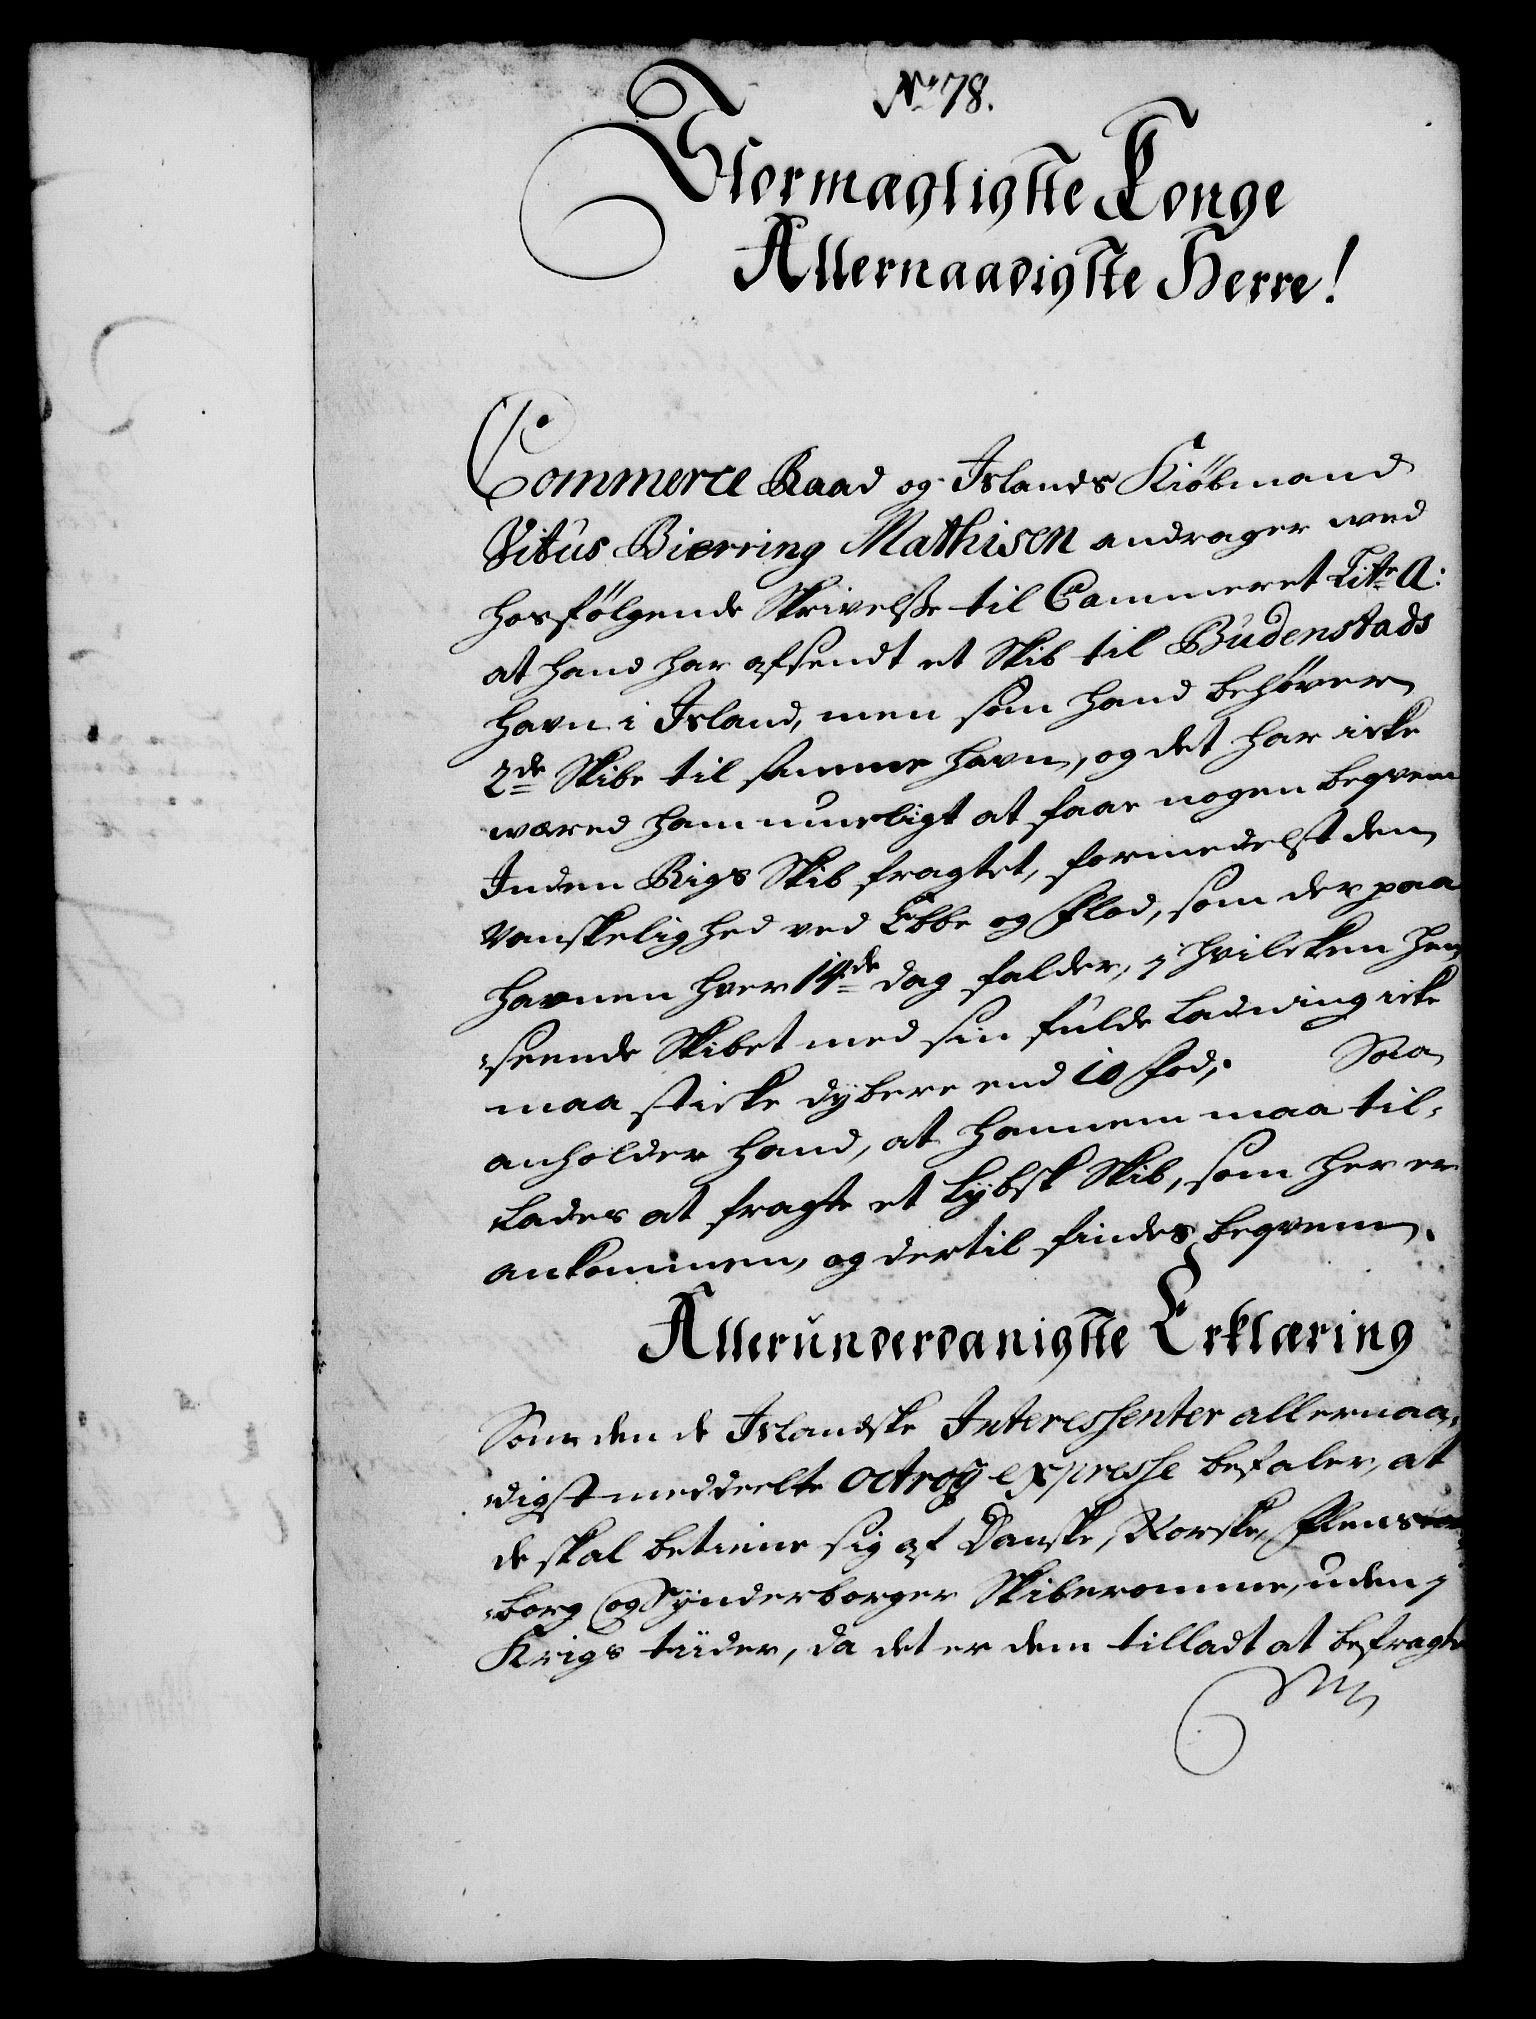 No 78.
Stormægtigste Konge
Allernaadigste Herre!
Commerce Raad og Islands Kiöbmand
Vitus Bierring Mathisen andrager ved
hosfölgende Skrivelsse til Cammeret Litr A:
at hand har afsendt et Skib til Budenstads
havn i Island, men som hand behöver
2de Skibe til samme havn, og det har icke
været ham mueligt at faae nogen beqvem
Inden Rigs Skib fragtet, formedelst den
Vanskelighed ved Ebbe og Flod, som der paa
havnen hver 14de dag falder, i hvilcken hen,
,seende Skibet med sin fulde Ladning icke
maa sticke dybere end 10 Fod; Saa
anholder hand, at hannem maa til,
Lades at fragte et Lybsk Skib, som her er
ankommen, og dertil findes beqvem.
Allerunderdanigste Erklæring
Som den de Islandske Interessenter allernaa,
digst meddeelte octroy expresse befaler, at
de skal betiene sig af Danske, Norske, Flens
,borg og Synderborger Skiberomme, uden i
Krigs tiider, da det er dem tilladt at befragte